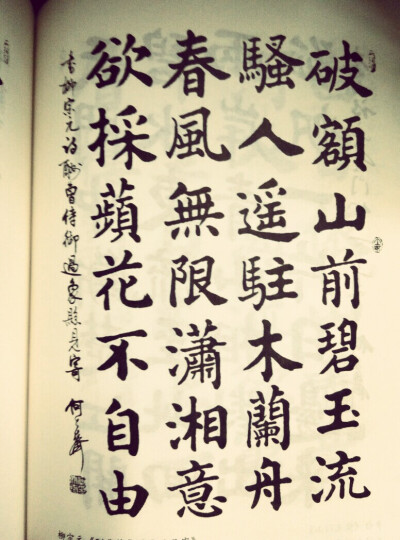 破額山前碧玉流
騷人遥駐木蘭舟
春風無限瀟湘意
欲採蘋花不自由
書柳宗元詩酬曹侍御過象縣見寄